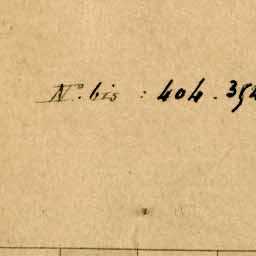 N° bis : 404 . 394